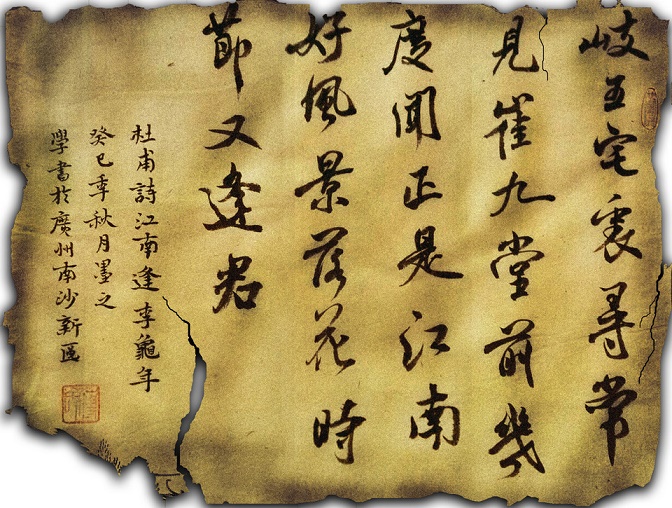 岐王宅裏尋常
見崔九堂前幾
度聞正是江南
好風景落花時
節又逢君
杜甫詩江南逢李龜年
癸巳季秋月墨之
學書於廣州南沙新區